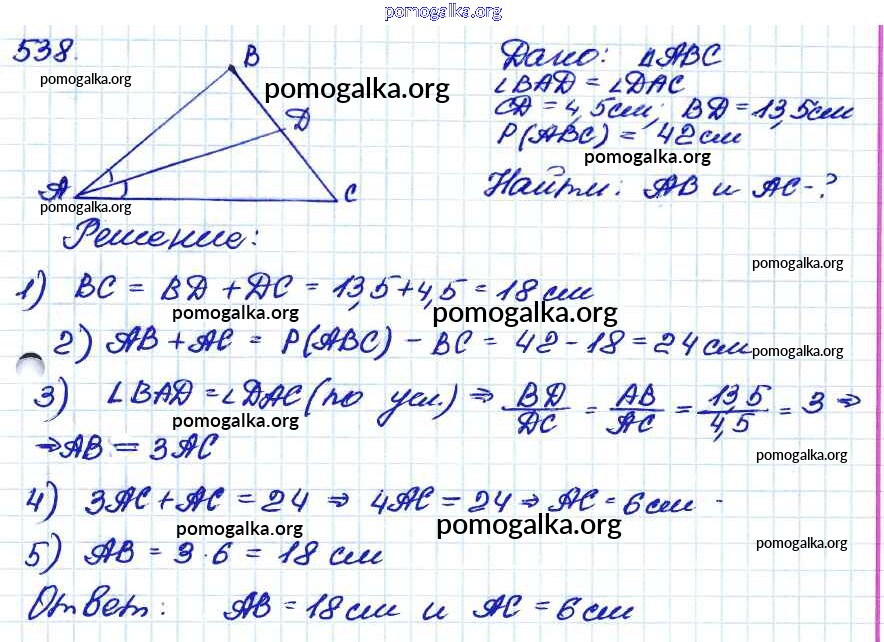 pomogalka.org
538.
B
Дано: ΔABC
pomogalka.org
pomogalka.org
∠BAD = ∠DAC
CD = 4,5см; BD = 13,5см
D
P(ABC) = 42см
pomogalka.org
A
C
Найти: AB и AC-?
pomogalka.org
Решение:
pomogalka.org
1) BC = BD + DC = 13,5+4,5 = 18 см
pomogalka.org
pomogalka.org
2) AB + AC = P(ABC) - BC = 42 - 18 = 24 см
pomogalka.org
3) ∠BAD = ∠DAC (по усл.) ⇒ BD/DC = AB/AC = 13,5/4,5 = 3 ⇒
pomogalka.org
⇒ AB = 3AC
pomogalka.org
4) 3AC + AC = 24 ⇒ 4AC = 24 ⇒ AC = 6см
pomogalka.org
pomogalka.org
5) AB = 3·6 = 18 см
pomogalka.org
Ответ: AB = 18см и AC = 6см